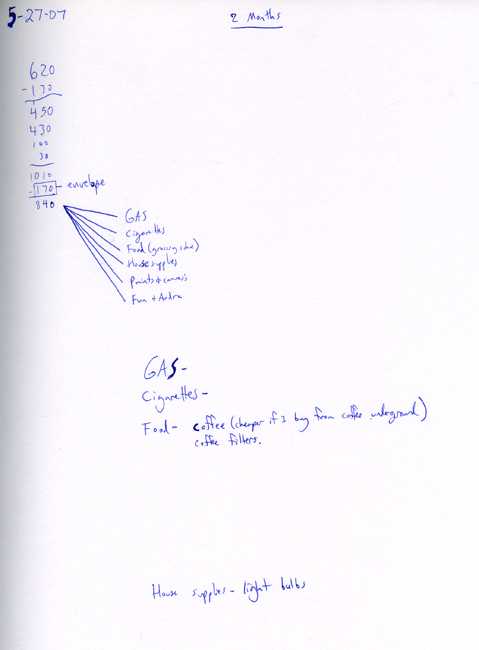 5-27-07
2 Months
620
-170
450
430
100
30
1010
-170 - envelope
840
GAS
Cigarettes
Food (grocery store)
House supplies
Paints & canvas
Fun &
GAS-
Cigarettes -
Food - coffee (cheaper if I buy from coffee underground)
coffee filters.
House supplies - light bulbs